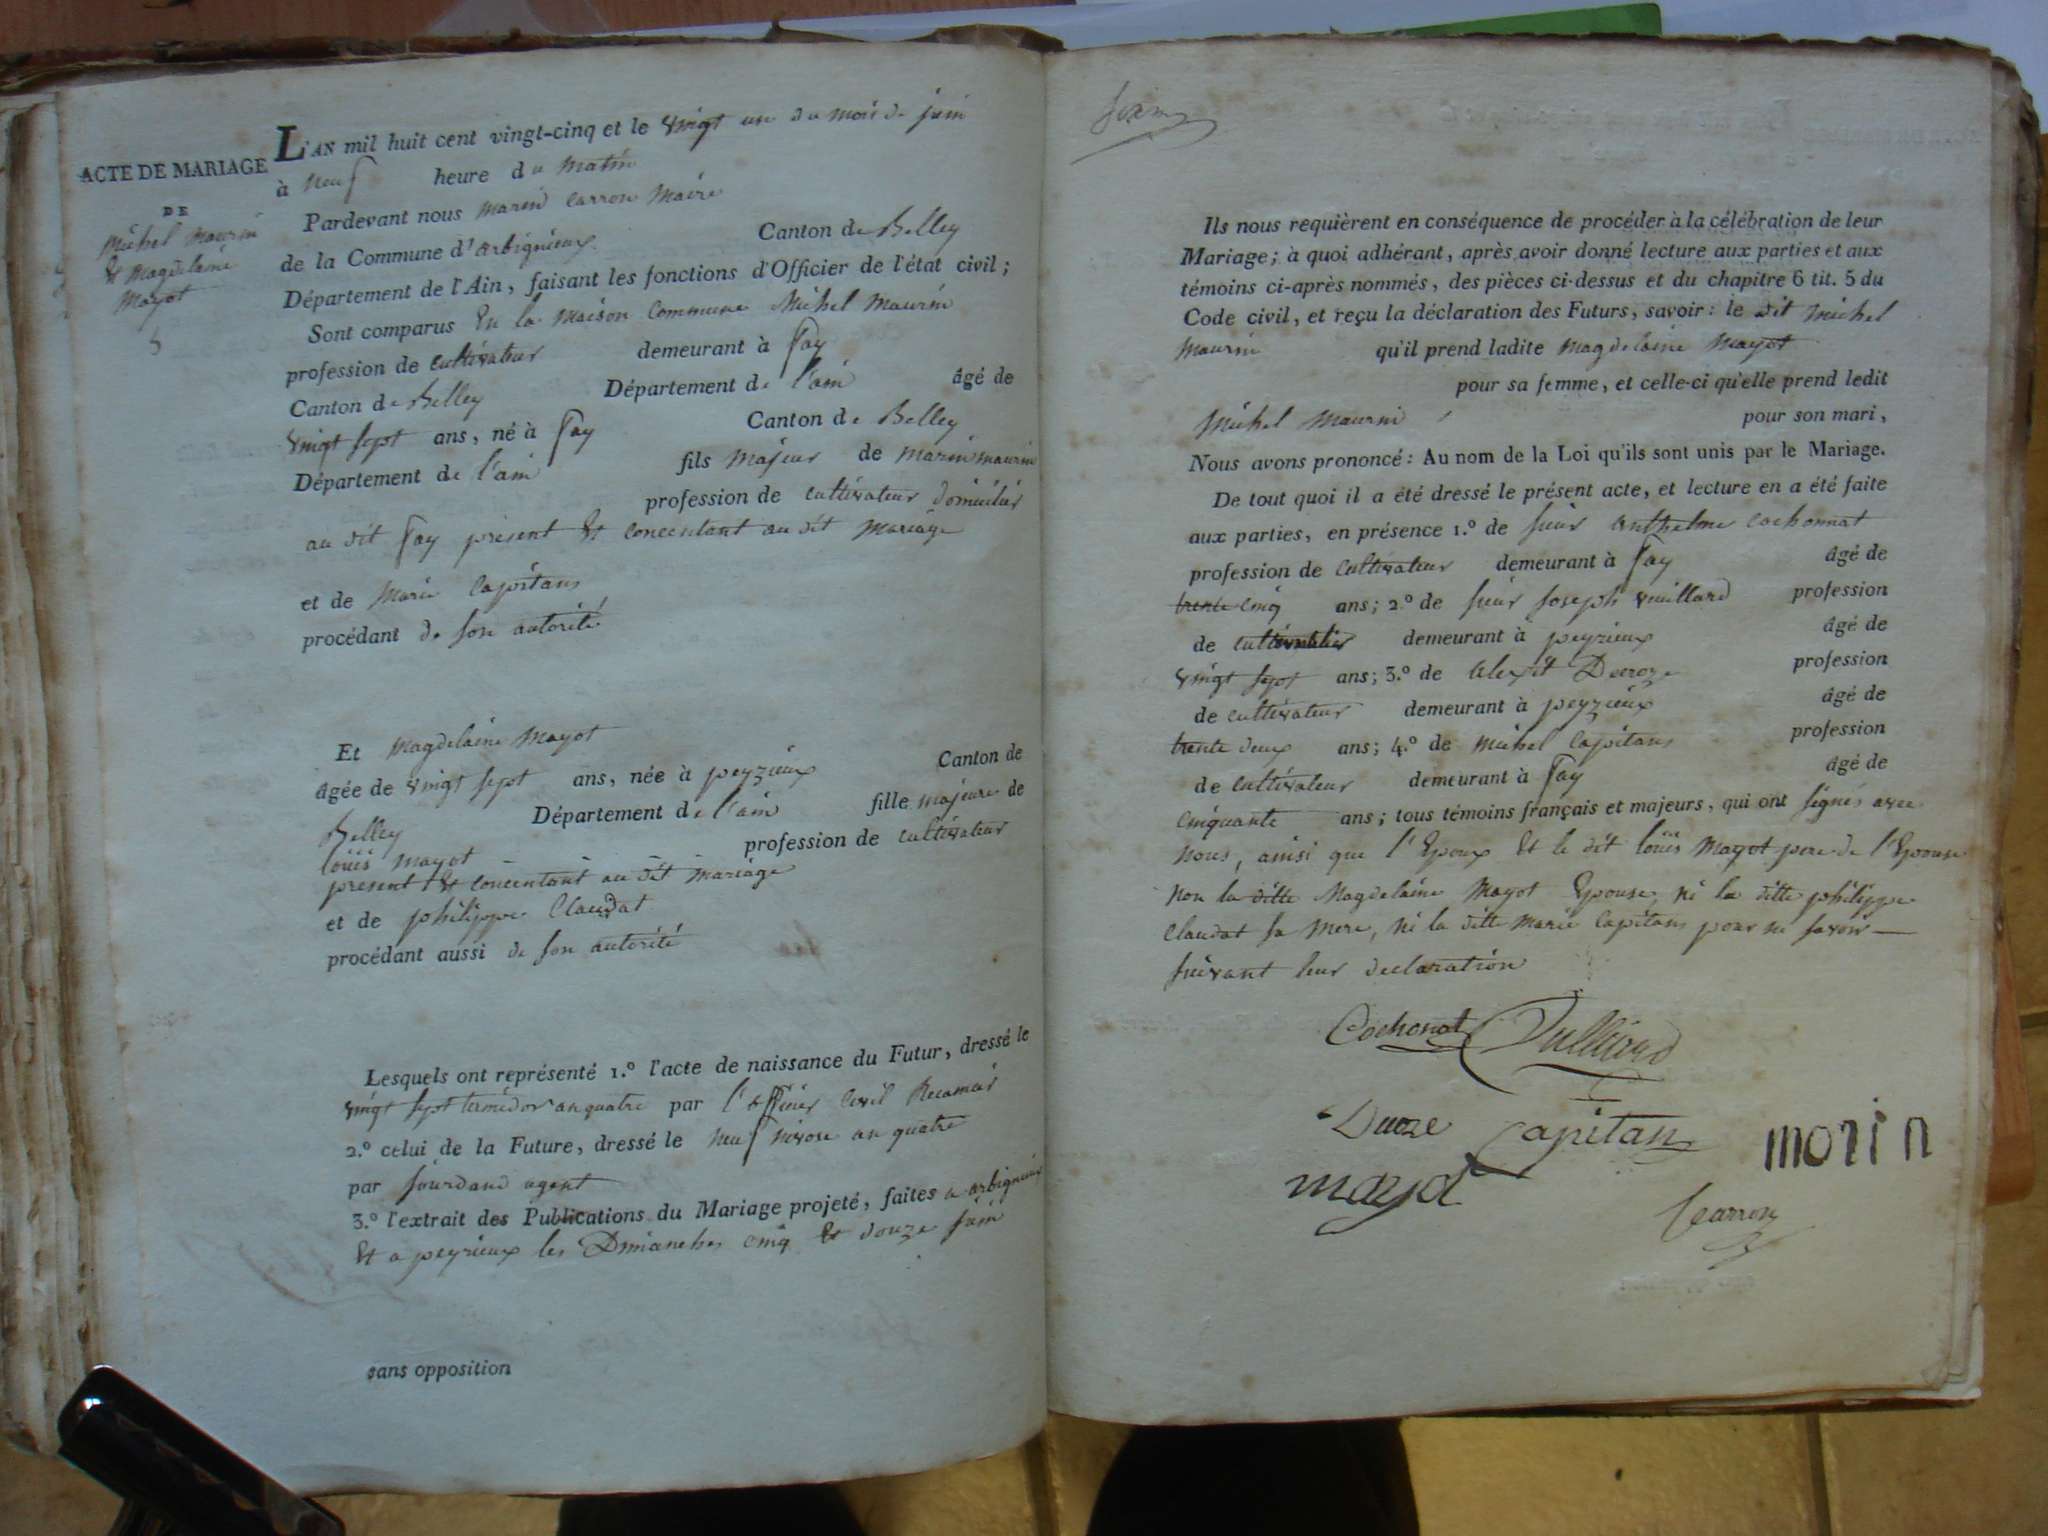 ACTE DE MARIAGE
DE
Michel Maurin
Et Magdelaine
Mayot
5
L'AN mil huit cent vingt-cinq et le vingt un du mois de juin
à neuf heure du matin
Pardevant nous marin carron Maire
de la Commune d'arbignieux Canton de Belley
Département de l'Ain, faisant les fonctions d'Officier de l'état civil;
Sont comparus En la Maison Commune Michel Maurin
profession de cultivateur demeurant à Fay
Canton de Belley Département de l'ain âgé de
vingt sept ans, né à Fay Canton de Belley
Département de l'ain fils majeur de marin maurin
profession de cultivateur domicilié
au dit Fay présent Et concentant au dit Mariage
et de Marie Capitans
procédant de son autorité
Et Magdelaine Mayot
âgée de vingt sept ans, née à peyzieux Canton de
Belley Département de l'ain fille majeure de
loüis mayot profession de cultivateur
present Et concentant au dit mariage
et de philippe Claudat
procédant aussi de son autorité
Lesquels ont représenté 1.º l'acte de naissance du Futur, dressé le
vingt sept termidor an quatre par l'officier Civil Recamier
2.º celui de la Future, dressé le neuf nivose an quatre
par jourdand agent
3.º l'extrait des Publications du Mariage projeté, faites a arbignieux
Et a peyzieux les Dimanches cinq Et douze juin
sans opposition
Ils nous requièrent en conséquence de procéder à la célébration de leur
Mariage; à quoi adhérant, après avoir donné lecture aux parties et aux
témoins ci-après nommés, des pièces ci-dessus et du chapitre 6 tit. 5 du
Code civil, et reçu la déclaration des Futurs, savoir: le dit Michel
Maurin qu'il prend ladite Magdelaine Mayot
pour sa femme, et celle-ci qu'elle prend ledit
Michel Maurin pour son mari,
Nous avons prononcé: Au nom de la Loi qu'ils sont unis par le Mariage.
De tout quoi il a été dressé le présent acte, et lecture en a été faite
aux parties, en présence 1.º de sieur Anthelme Cochonnat
profession de cultivateur demeurant à Fay âgé de
trente cinq ans; 2.º de sieur Joseph vuillard profession
de demeurant à peyzieux âgé de
vingt sept ans; 3.º de alexit Ducroze profession
de cultivateur demeurant à peyzieux âgé de
trente deux ans; 4.º de Michel Capitans profession
de cultivateur demeurant à Fay âgé de
cinquante ans; tous témoins français et majeurs, qui ont signés avec
nous, ainsi que l'Epoux Et le dit loüis Mayot pere de l'Epouse
non la ditte Magdelaine Mayot Epouse, ni la ditte philippe
Claudat sa mere, ni la ditte Marie Capitans pour ne savoir
suivant leur declaration
Cochonat Vulliard
Capitan morin
mayot
Carron